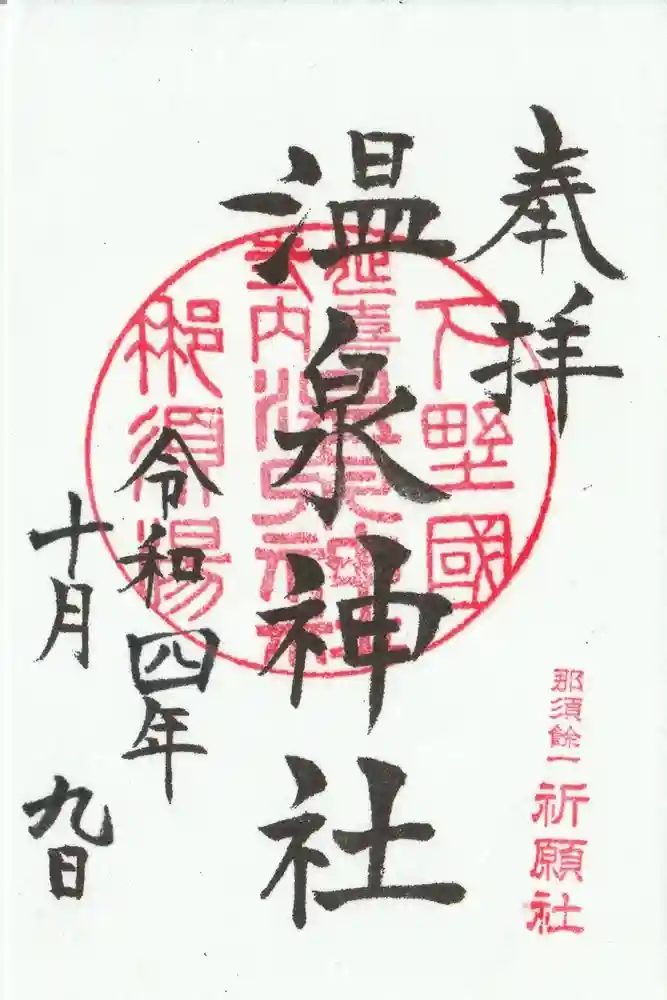 奉拝
下野國
延喜式内温泉神社
那須湯
温泉神社
令和四年
十月九日
那須餘一
祈願社